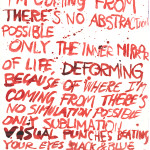 I'M COMING FROM
THERE'S NO ABSTRACTION
POSSIBLE
ONLY THE INNER MIRROR
OF LIFE DEFORMING
BECAUSE OF WHERE I'M
COMING FROM THERE'S
NO SIMULATION POSSIBLE
ONLY
VISUAL PUNCHES BEATING
YOUR EYES BLACK & BLUE